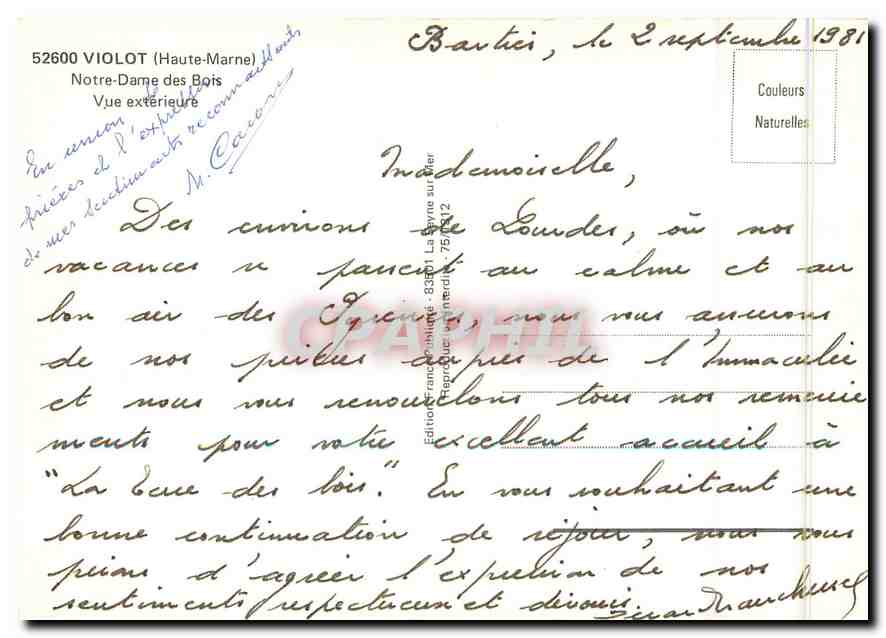 52600 VIOLOT (Haute-Marne)
Notre-Dame des Bois
Vue extérieure
En union de
prières et l'expression
de mes sentiments reconnaissants
M. Caron
le 2 septembre 1981
Couleurs
Naturelles
Mademoiselle,
Des environs de Lourdes, où nos
vacances se passent au calme et au
bon air des Pyrénées, nous vous assurons
de nos prières auprès de l'Immaculée
et nous vous renouvelons tous nos remercie
ments pour votre excellent accueil à
"La des bois." En vous souhaitant une
bonne continuation de séjour, nous vous
prions d'agréer l'expression de nos
sentiments respectueux et dévoués.
Edition France Publicité - 83501 La Seyne sur Mer
Reproduction interdite - 75/0812
CPAPHIL